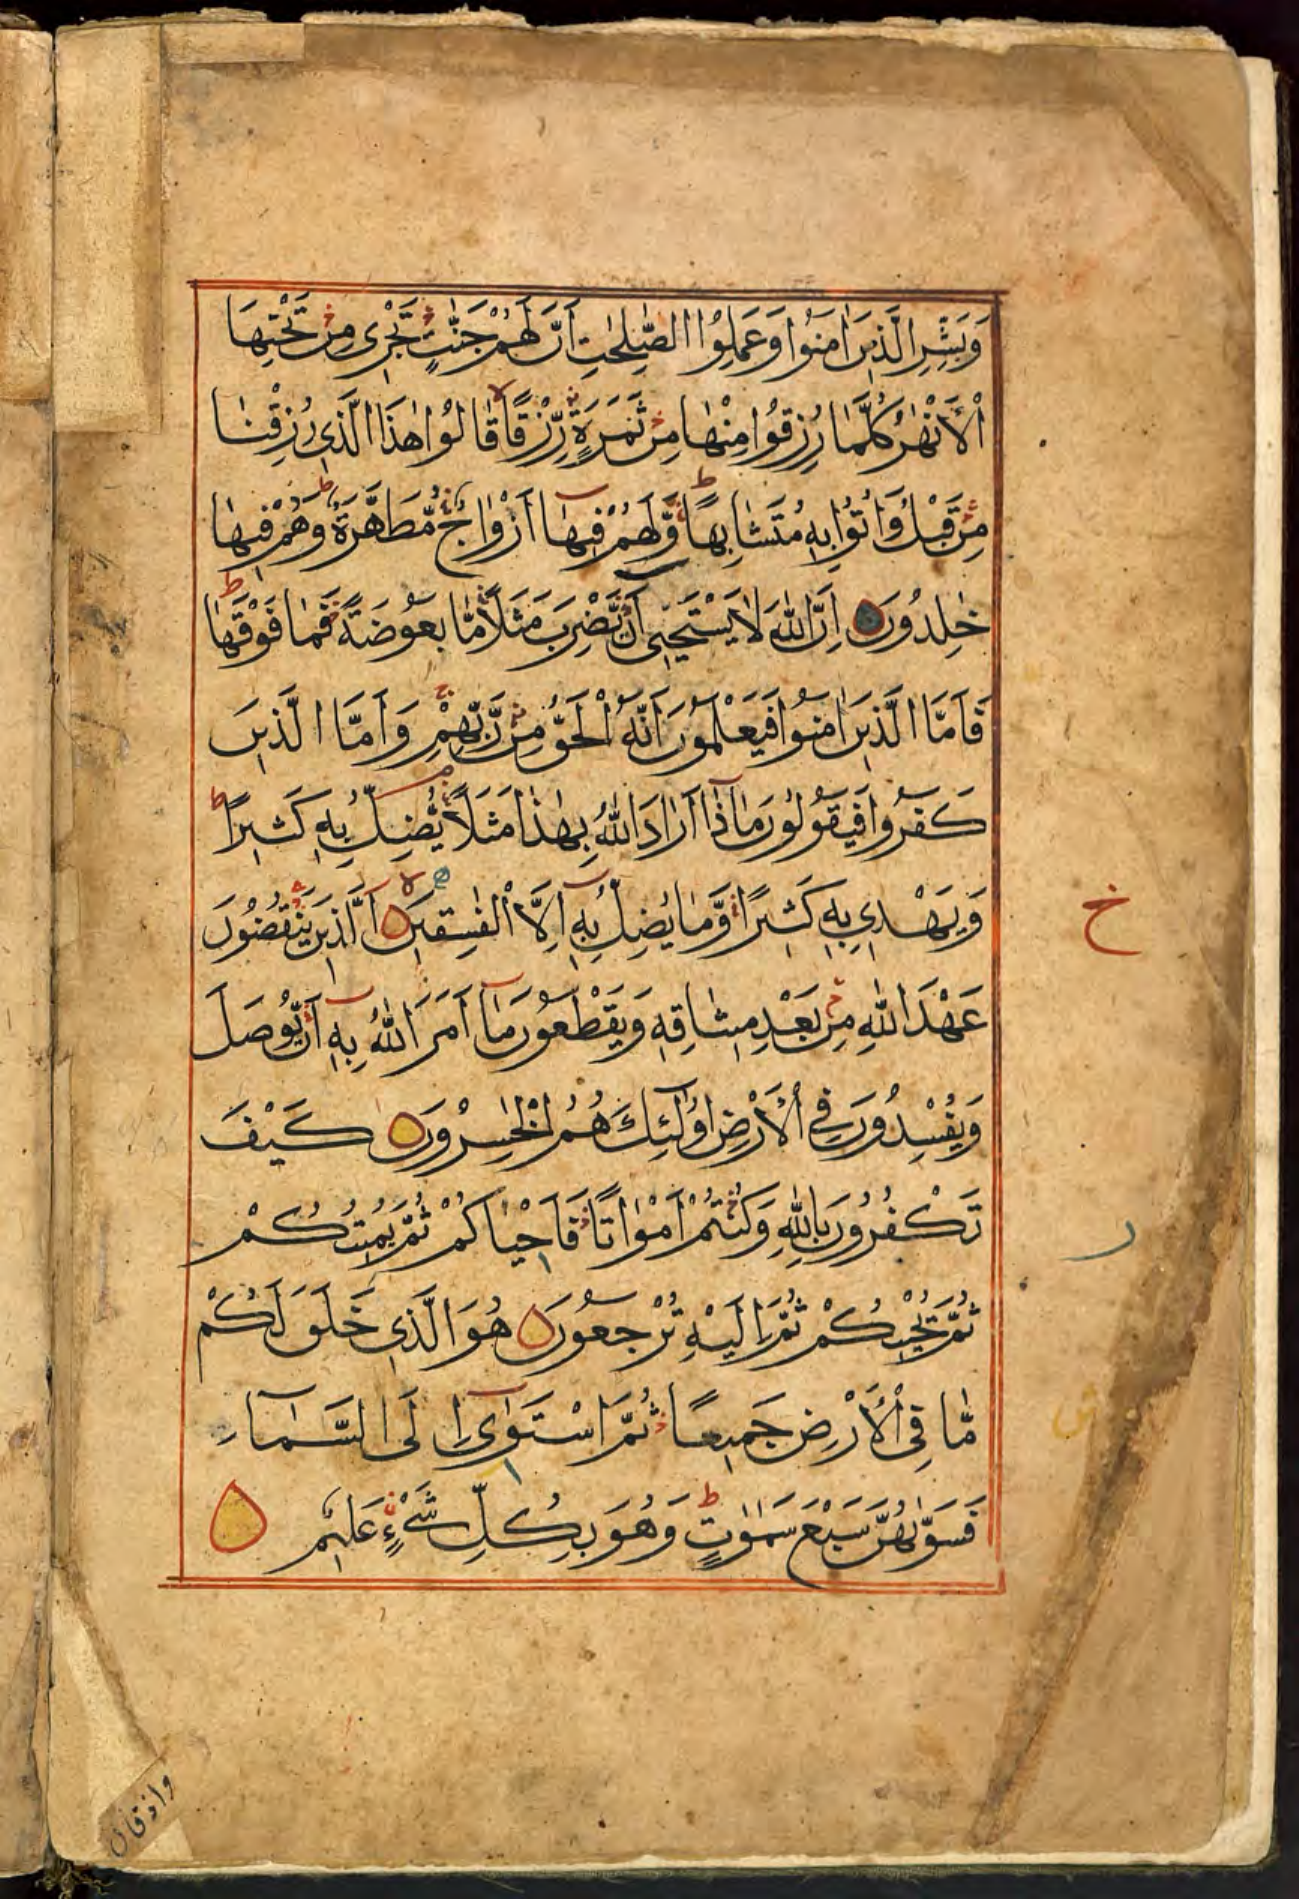 وَبَشِّرِ الَّذِينَ اٰمَنُوا وَعَمِلُوا الصّٰلِحٰتِ اَنَّ لَهُمْ جَنّٰتٍ تَجْرِى مِنْ تَحْتِهَا
الْاَنْهٰرُ كُلَّمَا رُزِقُوا مِنْهَا مِنْ ثَمَرَةٍ رِّزْقًا قَالُوا هٰذَا الَّذِى رُزِقْنَا
مِنْ قَبْلُ وَاُتُوا بِهٖ مُتَشَابِهًا وَّلَهُمْ فِيهَا اَزْوَاجٌ مُّطَهَّرَةٌ وَهُمْ فِيهَا
خٰلِدُونَ اِنَّ اللّٰهَ لَا يَسْتَحْيٖ اَنْ يَّضْرِبَ مَثَلًا مَّا بَعُوضَةً فَمَا فَوْقَهَا
فَاَمَّا الَّذِينَ اٰمَنُوا فَيَعْلَمُونَ اَنَّهُ الْحَقُّ مِنْ رَّبِّهِمْ وَاَمَّا الَّذِينَ
كَفَرُوا فَيَقُولُونَ مَاذَا اَرَادَ اللّٰهُ بِهٰذَا مَثَلًا يُّضِلُّ بِهٖ كَثِيرًا
وَّيَهْدِى بِهٖ كَثِيرًا وَّمَا يُضِلُّ بِهٖ اِلَّا الْفٰسِقِينَ الَّذِينَ يَنْقُضُونَ
عَهْدَ اللّٰهِ مِنْ بَعْدِ مِيثَاقِهٖ وَيَقْطَعُونَ مَا اَمَرَ اللّٰهُ بِهٖ اَنْ يُّوصَلَ
وَيُفْسِدُونَ فِى الْاَرْضِ اُولٰئِكَ هُمُ الْخٰسِرُونَ كَيْفَ
خ
تَكْفُرُونَ بِاللّٰهِ وَكُنْتُمْ اَمْوَاتًا فَاَحْيَاكُمْ ثُمَّ يُمِيتُكُمْ
ر
ثُمَّ يُحْيِيكُمْ ثُمَّ اِلَيْهِ تُرْجَعُونَ هُوَ الَّذِى خَلَقَ لَكُمْ
مَّا فِى الْاَرْضِ جَمِيعًا ثُمَّ اسْتَوٰى اِلَى السَّمَاءِ
فَسَوّٰىهُنَّ سَبْعَ سَمٰوٰتٍ وَهُوَ بِكُلِّ شَىْءٍ عَلِيمٌ
واذ قال